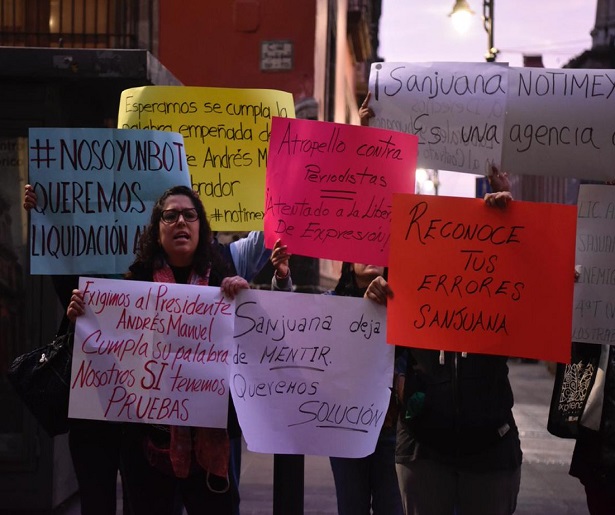 Esperamos se cumpla la
palabra empeñada de
Andrés M
brador
#notimex
¡Sanjuana NOTIMEX
Es una agencia
#NOSOYUNBOT
QUEREMOS
LIQUIDACIÓN
Atropello contra
Periodistas
Atentado a la
De Expresión!
RECONOCE
TUS
ERRORES
SANJUANA
Exigimos al Presidente
ANDRÉS MANUEL
Cumpla su palabra
Nosotros SI tenemos
PRUEBAS
Sanjuana deja
de MENTIR.
Queremos
SOLUCIÓN